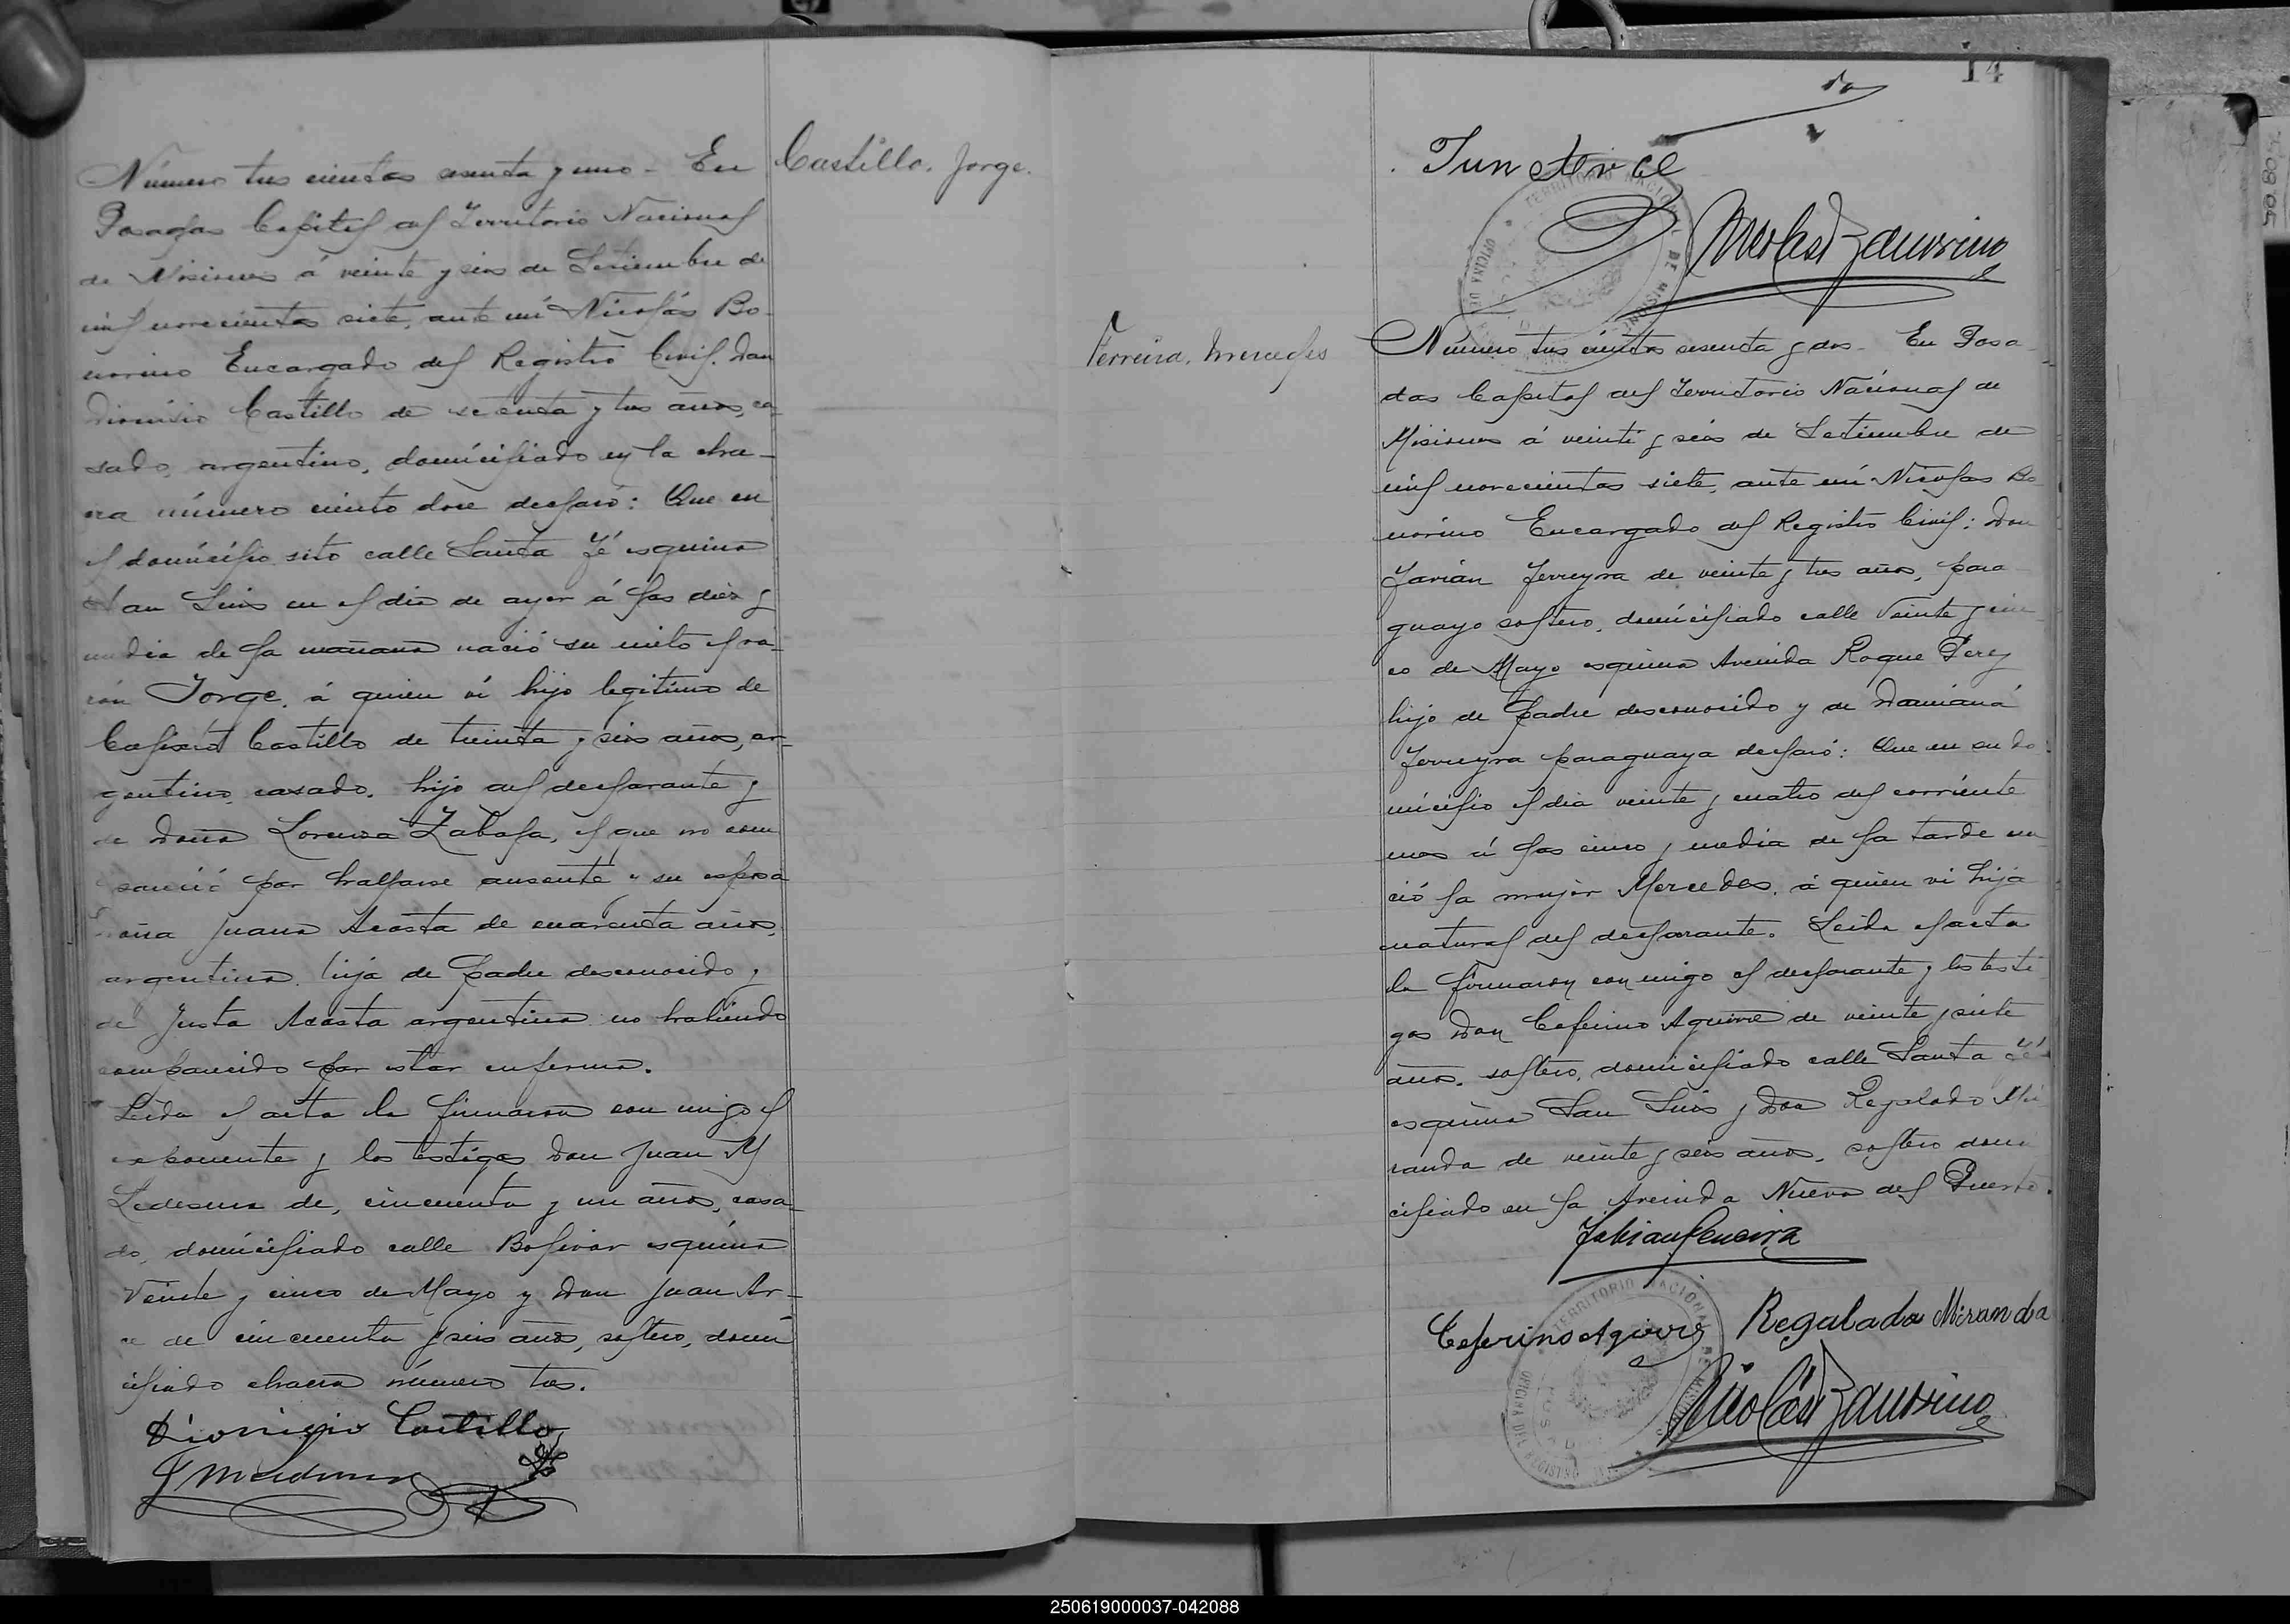 Número tres cientos sesenta y uno - En
Posadas Capital del Territorio Nacional
de Misiones á veinte y seis de Setiembre de
mil novecientos siete, ante mi Nicolás Bo-
norino Encargado del Registro Civil. Don
Dionisio Castillo de setenta y tres años, ca-
sado, argentino, domiciliado en la cha-
cra número ciento doce declaró: Que en
el domicilio sito calle Santa Fé esquina
San Luis en el dia de ayer á las diez y
media de la mañana nació su nieto el va-
rón Jorge, á quien ví hijo legitimo de
Castillo de treinta y seis años, ar-
gentino, casado, hijo del declarante y
de Doña Lorenza Zabala, el que no com
pareció por hallarse ausente y su esposa
Doña Juana Acosta de cuarenta años,
argentina, hija de padre desconocido y
de Justa Acosta argentina no habiendo
comparecido por estar enferma.
Leida el acta la firmaron con migo el
exponente y los testigos Don Juan M
Ledesma de, cincuenta y un años, casa-
do, domiciliado calle Bolivar esquina
Veinte y cinco de Mayo y Don Juan Ar-
ce de cincuenta y seis años, soltero, domi
ciliado chacra número tres.
Dionisio Castillo
Castillo, Jorge.
14
Nicolás Bonorino
TERRITORIO NACIONAL DE MISIONES
OFICINA DEL
Ferreira, Mercedes
Número tres cientos sesenta y dos - En Posa-
das Capital del Territorio Nacional de
Misiones á veinte y seis de Setiembre de
mil novecientos siete, ante mí Nicolas Bo
norino Encargado del Registro Civil: Don
Favián Ferreyra de veinte y tres años, para
guayo soltero, domiciliado calle Veinte y cin
co de Mayo esquina Avenida Roque Perez
hijo de padre desconocido y de Damiana
Ferreyra paraguaya declaró: Que en su do-
micilio el dia veinte y cuatro del corriente
mes á las cinco y media de la tarde na
ció la mujer Mercedes, á quien vi hija
natural del declarante. Leida el acta
la firmaron con migo el declarante y los testi
gos Don Ceferino Aguirre de veinte y siete
años, soltero, domiciliado calle Santa Fé
esquina San Luis y Don Regalado Mi
randa de veinte y seis años, soltero domi
ciliado en la Avenida Nueva del Puerto.
Fabian Ferreira
Ceferino Aguirre Regalado Miranda
Nicolás Bonorino
TERRITORIO NACIONAL DE MISIONES
250619000037-042088